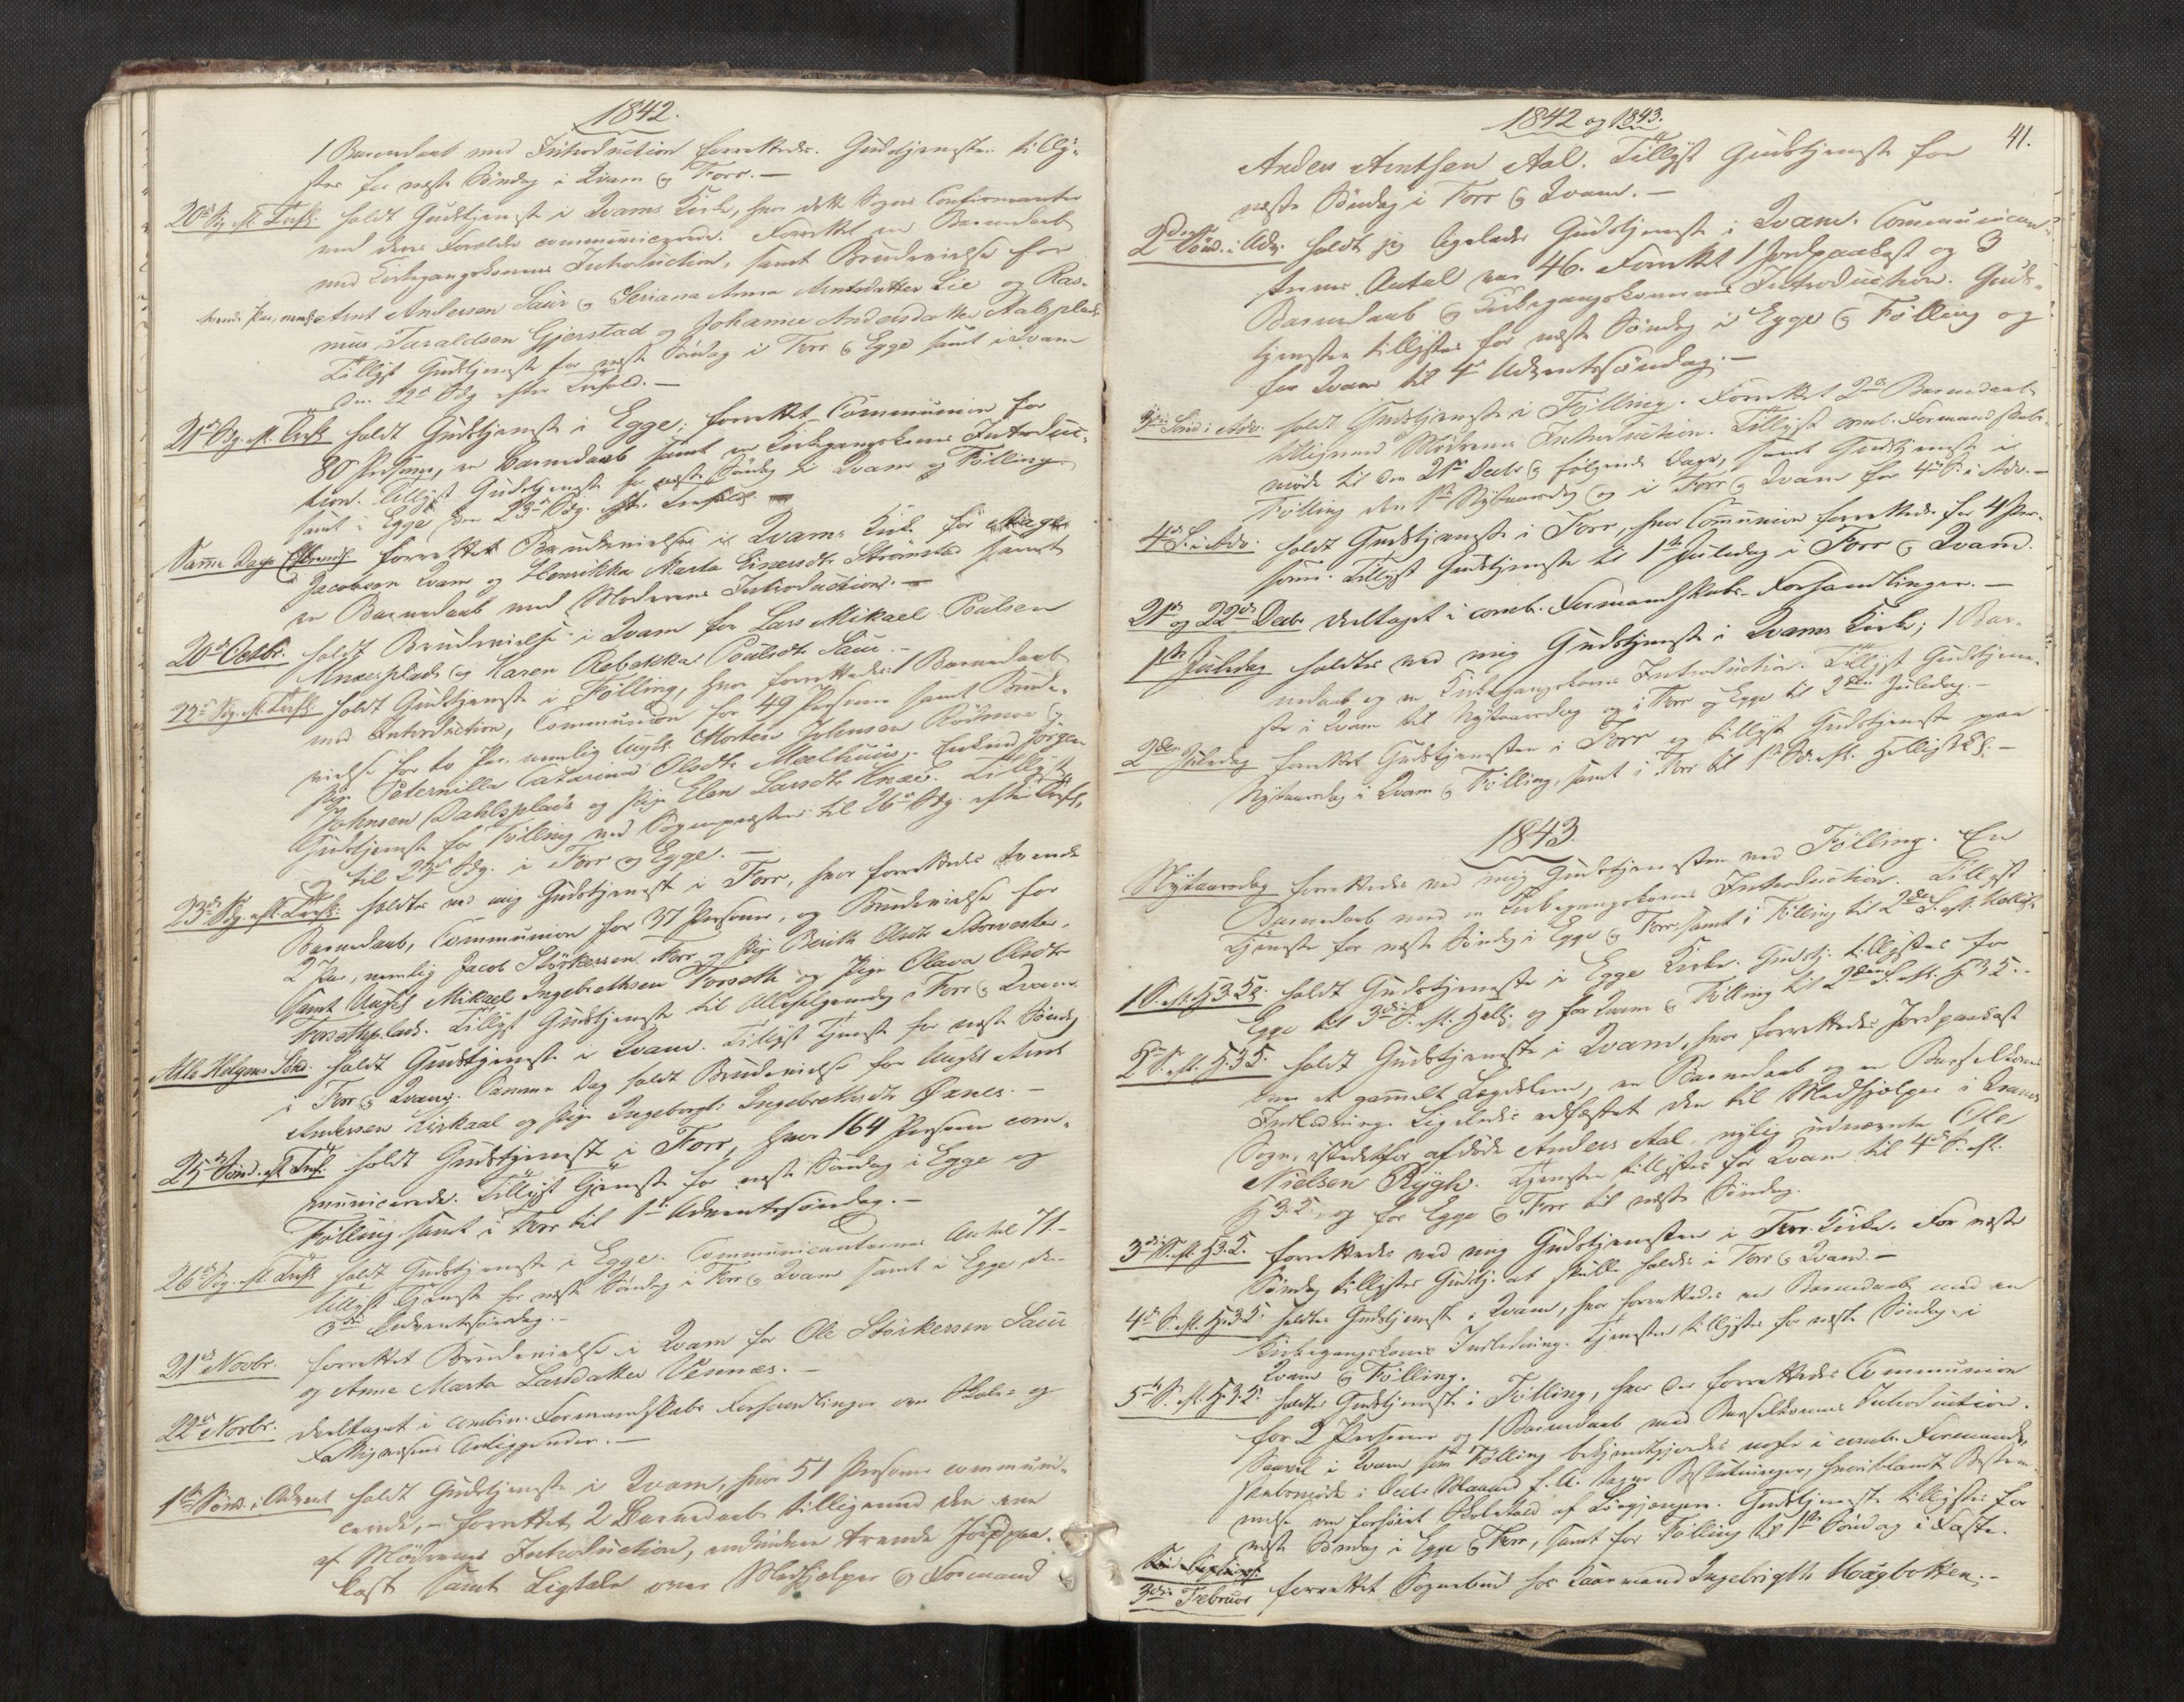 1842.
1 Barnedaab med Introduction forrettedes. Gudstjenesten tilly-
stes for næste Söndag i Qvam og Forr. —
20de Sdg. eft. Trefh. holdt Gudstjeneste i Qvams Kirke, hvor dette Sogns Confirmanter
med deres Forældre communicerede. Forrettet en Barnedaab
med Kirkegangskonens Introduction, samt Brudevielse for
tvende Par, neml: Arnt Andersen Saur og Seriana Anna Arntsdatter Lie og Ras-
mus Taraldsen Gjerstad og Johanna Andersdatter Aalsplads.
Tillyst Gudstjeneste for næste Söndag i Forr og Egge samt i Qvam
den 22de Sdg. efter Trefold. —
21de Sdg. eft. Trefh. holdt Gudstjeneste i Egge; forrettet Communion for
80 Personer, en Barnedaab samt en Kirkegangskones Introduc-
tion. Tillyst Gudstjeneste for næste Söndag til Qvam og Fölling
samt i Egge den 23de Sdg. eft. Trefold.
Samme Dags forrettet Brudevielse i Qvams Kirke for
Jacobsen Qvam og Henrikka Marta Einersdtr Strömstad samt
en Barnedaab med Moderens Introduction. —
20de Octbr. holdt Brudevielse i Qvam for Lars Mikael Poulsen
Aalsplads og Karen Rebekka Poulsdtr Saur. —
22de Sdg. eft. Trefh. holdt Gudstjeneste i Fölling, hvor forrettedes 1 Barnedaab
med Introduction, Communion for 49 Personer samt Brude-
vielse for to Par, nemlig Ungk. Morten Johnsen Rödmoe og
Pige Peternilla Catarina Olsdtr Moelhuus,- Enkem. Jörgen
Johnsen Dahlsplads og Pige Elen Larsdtr Knæe. Tillyst
Gudstjeneste for Fölling ved Sognepræsten til 26de Sdg. efter Trefh.
og til 25de Sdg. i Forr og Egge. —
23de Sdg. eft. Trefh. holdtes ved mig Gudstjeneste i Forr, hvor forrettedes tvende
Barnedaab, Communion for 37 Personer, og Brudevielse for
2 Par, nemlig Jacob Störkersen Forr og Pige Berith Olsdtr
samt Ungk. Mikael Ingebrethsen Forseth og Pige Olava Olsdtr
Forsethplads. Tillyst Gudstjeneste til Allehelgensdag i Forr og Qvam.
Alle Helgens Sdag. holdt Gudstjeneste i Qvam. Tillyst Tjeneste for næste Söndag
i Forr og Qvam. Samme Dag holdt Brudevielse for Ungk. Arnt
Andersen Kirkaal og Pige Ingeborg Ingebrethsdtr Öxnes. —
25de Sönd. eft. Tref. holdt Gudstjeneste i Forr, hvor 164 Personer com-
municerede. Tillyst Tjeneste for næste Söndag i Egge og
Fölling samt i Forr til 1ste Adventssöndag. —
26de Sdg. eft. Trefh. holdt Gudstjeneste i Egge. Communicanternes Antal 71 -
tillyst Tjeneste for næste Söndag i Forr og Qvam samt i Egge den
3die Adventssöndag. —
21de Novbr. forrettet Brudevielse i Qvam for Ole Störkersen Saur
og Anne Marta Larsdatter Vennæs. —
22de Novbr. deeltaget i combin. Formandskabs Forhandlinger om Skole- og
Fattigvæsens Anliggender. —
1ste Sönd. i Advent holdt Gudstjeneste i Qvam, hvor 51 Personer communi-
cerede,- forrettet 2 Barnedaab tilligemed den ene
af Mödrenes Introduction, endvidere tvende Jordpaa-
kast samt Ligtale over Medhjælper og Formand
1842 og 1843.
41.
Anders Arntsen Aal. Tillyst Gudstjeneste for
næste Söndag i Forr og Qvam. —
2den Sönd. i Adv. holdt jeg ligeledes Gudstjeneste i Qvam. Communican-
ternes Antal var 46. Forrettet 1 Jordpaakast og 3
Barnedaab og Kirkegangskonernes Introduction. Guds-
tjenesten tillystes for næste Söndag i Egge og Fölling og
for Qvam til 4de Adventssöndag. —
3die Sönd. i Adv. holdt Gudstjeneste i Fölling. Forrettet 2de Barnedaab
tilligemed Mödrenes Introduction. Tillyst comb. Formandskabs-
möde til den 21de Decbr og fölgende Dage, samt Gudstjeneste i
Fölling den 1ste Nytaarsdag og i Forr og Qvam for 4de S. i Adv. —
4de S. i Adv. holdt Gudstjeneste i Forr, hvor Communion forrettedes for 4 Per-
soner. Tillyst Gudstjeneste til 1ste Juledag i Forr og Qvam.
21de og 22de Decbr deeltaget i comb. Formandskabs-Forhandlinger. —
1ste Juledag holdtes ved mig Gudstjeneste i Qvams Kirke; 1 Bar-
nedaab og en Kirkegangskones Introduction. Tillyst Gudstjene-
ste i Qvam til Nytaarsdag og i Forr og Egge til 2den Juledag. —
2den Juledag forrettet Gudstjenesten i Forr og tillyst Gudstjeneste paa
Nytaarsdag i Qvam og Fölling, samt i Forr til 1ste S. eft. Hellig 3 K. —
1843.
Nytaarsdag forrettedes ved mig Gudstjenesten ved Fölling. En
Barnedaab med en Kirkegangskones Introduction. Tillyst
Tjeneste for næste Söndag i Egge og Forr, samt i Fölling til 2den S. eft.
1 S. eft. H. 3 K. holdt Gudstjeneste i Egge Kirke. Gudstj. tillystes for
Egge til 3die S. eft. Hell., og for Qvam og Fölling til 2den S. eft. H. 3 K. -
2den S. eft. H. 3 K. holdt Gudstjeneste i Qvam, hvor forrettedes Jordpaakast
over et gammelt Lægdslem, en Barnedaab og en Barselkones
Indledning. Ligeledes den til Medhjælper i Qvams
Sogn, istedetfor afdöde Anders Aal, nylig udnævnte Ole
Nielsen Rygh. Tjenesten tillystes for Qvam til 4de S. eft.
H. 3 K., og for Egge og Forr til næste Söndag.
3die S. eft. H. 3 K. forrettedes ved mig Gudstjenesten i Forr Kirke. For næste
Söndag tillystes Gudstj. at skulle holdes i Forr og Qvam. —
4de S. eft. H. 3 K. holdtes Gudstjeneste i Qvam, hvor forrettedes en Barnedaab med en
Kirkegangskones Indledning. Tjenesten tillystes for næste Söndag i
Qvam og Fölling.
5te S. eft. H. 3 K. holdtes Gudstjeneste i Fölling, hvor der forrettedes Communion
for 2 Personer og 1 Barnedaab med Barselkonens Introduction.
Saavel i Qvam som Fölling bekjendtgjordes nogle i comb. Formand-
skabsmöde i Decbr Maaned f. A. tagne Beslutninger, hvoriblandt Bestem-
melse om forhöiet Skolehold af Læg Gudstjeneste tillystes for
næste Söndag i Egge og Forr, samt for Fölling til 1ste Söndag i Faste.
3die Februar forrettet Sognebud hos Kaarmand Ingebrigth Hoagbotten. -